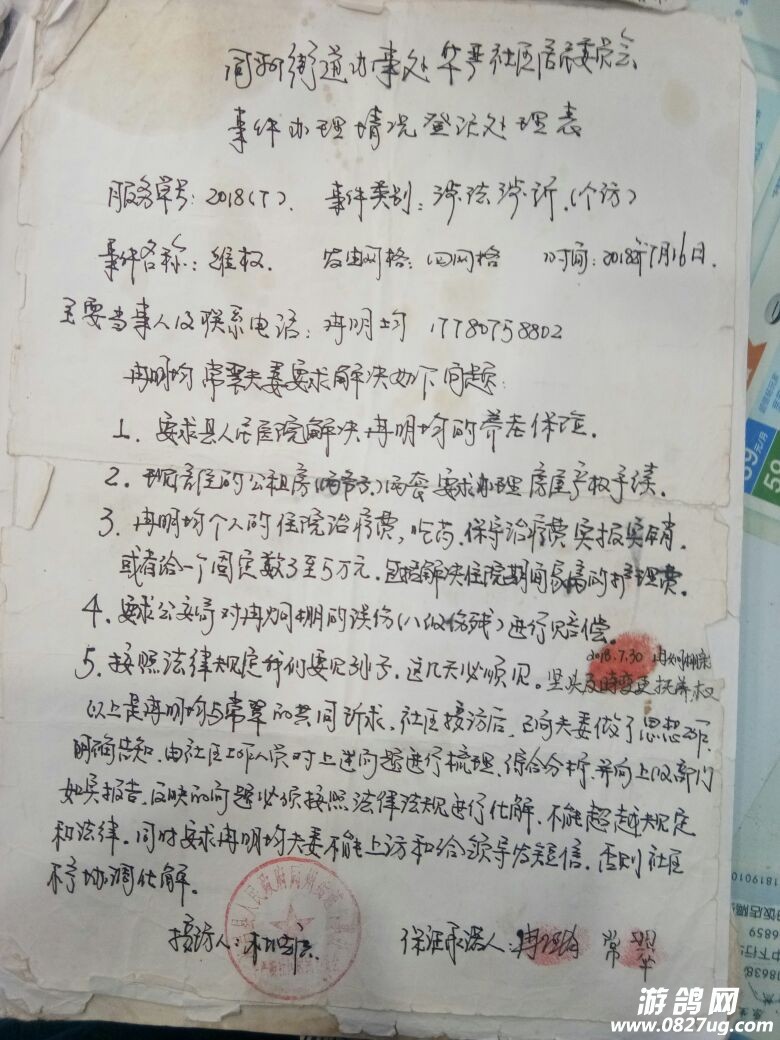 同州街道办事处华严社区居民委员会
事件办理情况登记处理表
服务单号:2018(7). 事件类别:涉法涉诉.(个访)
事件名称:维权. 发生网格:四网格 时间:2018年7月16日.
主要当事人及联系电话:冉明均 17780758802
冉明均 常翠夫妻要求解决如下问题:
1. 要求县人民医院解决冉明均的养老保险.
2. 现居住的公租房()两套要求办理房屋产权手续.
3. 冉明均个人的住院治疗费,吃药.保守治疗费实报实销.
或者给一个固定数3至5万元.包括解决住院期间的护理费.
4. 要求公安局对冉炯棚的误伤(八级伤残)进行赔偿.
2018.7.30
5. 按照法律规定我们要见孙子.这几天必顺见。坚决及時变更抚养权
以上是冉明均与常翠的共同诉求.社区接访后,已向夫妻做了思想工作.
明确告知.由社区工作人员对上述问题进行梳理.综合分析.并向上级部门
如实报告.反映的问题必须按照法律法规进行化解.不能超越规定
和法律.同时要求冉明均夫妻不能上访和给领导发短信.否则社区
不予协调化解.
接访人: 保证承诺人:冉明均 常翠
游鸽网
www.0827ug.com